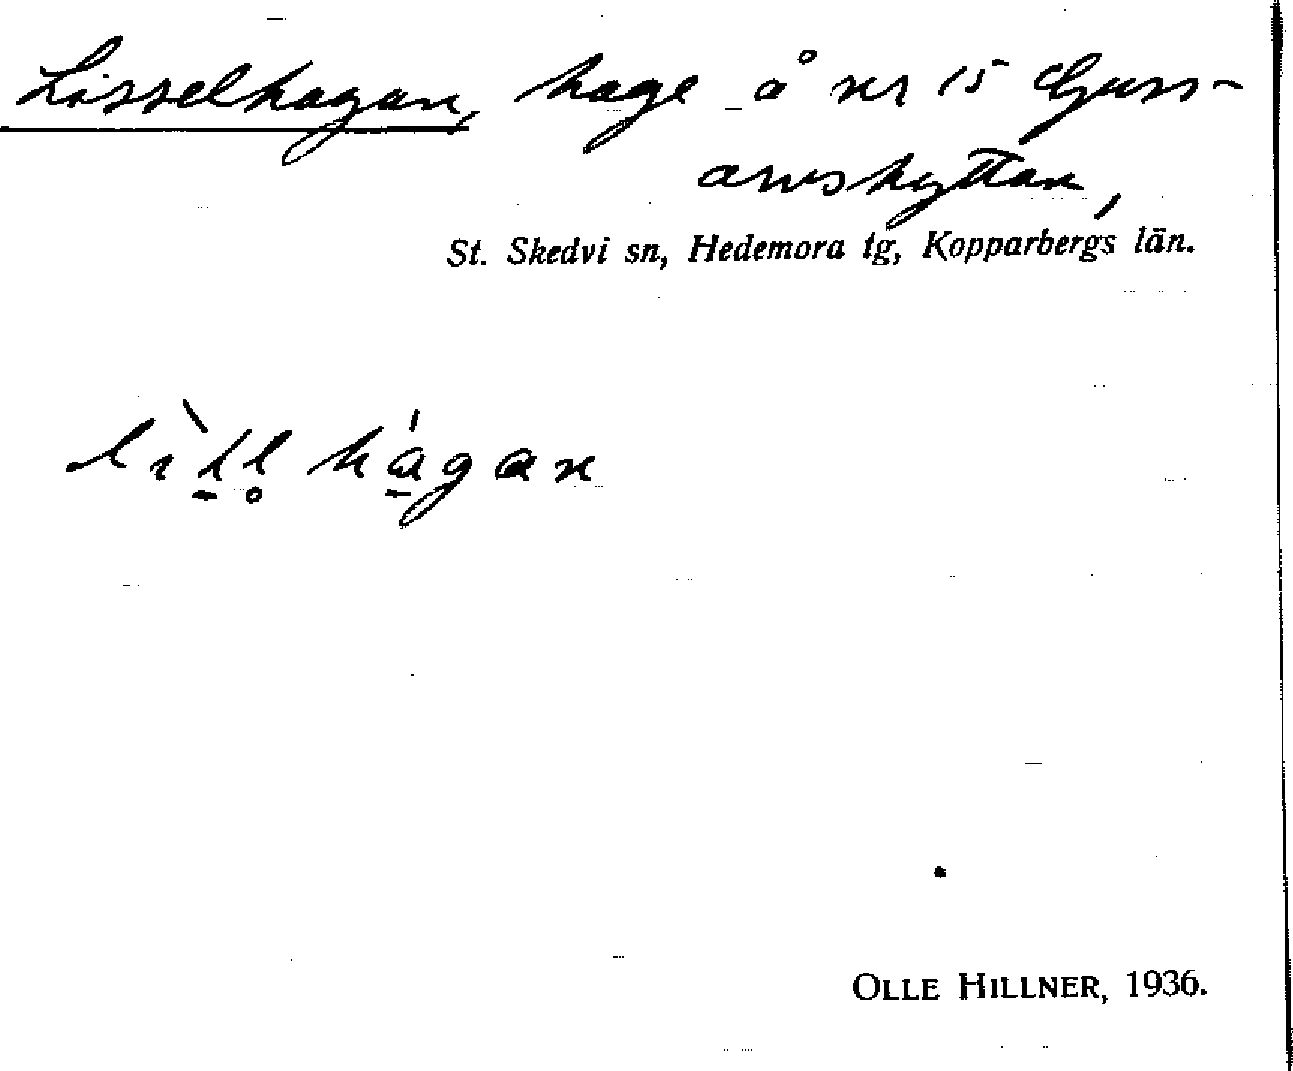 Lisselhagan, hage å nr 15 Guss-
arvshyttan,
St. Skedvi sn, Hedemora tg, Kopparbergs län.
OLLE HILLNER, 1936.